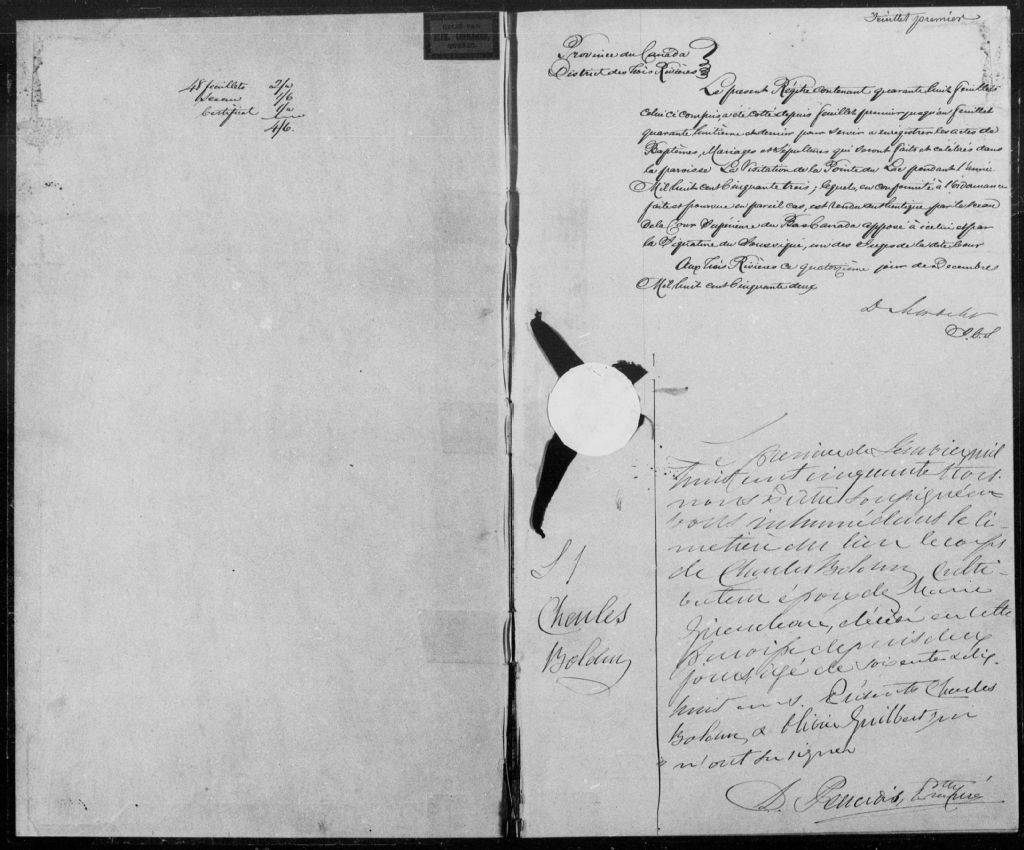 48 feuillets 2/0
Sceau 1/6
Certificat 1/0
4/6.
Feuillet premier
Province du Canada
District des Trois Rivières
Le présent Régitre contenant quarante huit feuillets
celui ci compris a été coté depuis feuillet premier jusqu'au feuillet
quarante huitième et dernier pour servir a enregistrer les actes de
Baptêmes, Mariages et Sépultures qui seront faits et célébrés dans
la paroisse La Visitation de la Pointe du Lac pendant l'année
Mil huit cent Cinquante trois; lequel, en conformité à l'Ordonnance
faite et pourvue en pareil cas, est rendu authentique par le sceau
de la Cour Supérieure du Bas Canada apposé à icelui et par
la Signature du Soussigné, un des Juges de la dite Cour
Aux Trois Rivières ce quatorzième jour de Decembre
Mil huit cent Cinquante deux
J.C.S
Le premier de Janvier mil
huit cent cinquante trois
nous Prêtre Soussigné a-
vons inhumé dans le ci-
metière du lieu le corps
de Charles Bolduc Culti-
vateur époux de Marie
décédé en cette
Paroisse depuis deux
jours âgé de soixante & dix
huit ans. Présents Charles
Bolduc & Olivier Guilbert qui
n'ont su signer
S 1
Charles
Bolduc
Ptre Curé